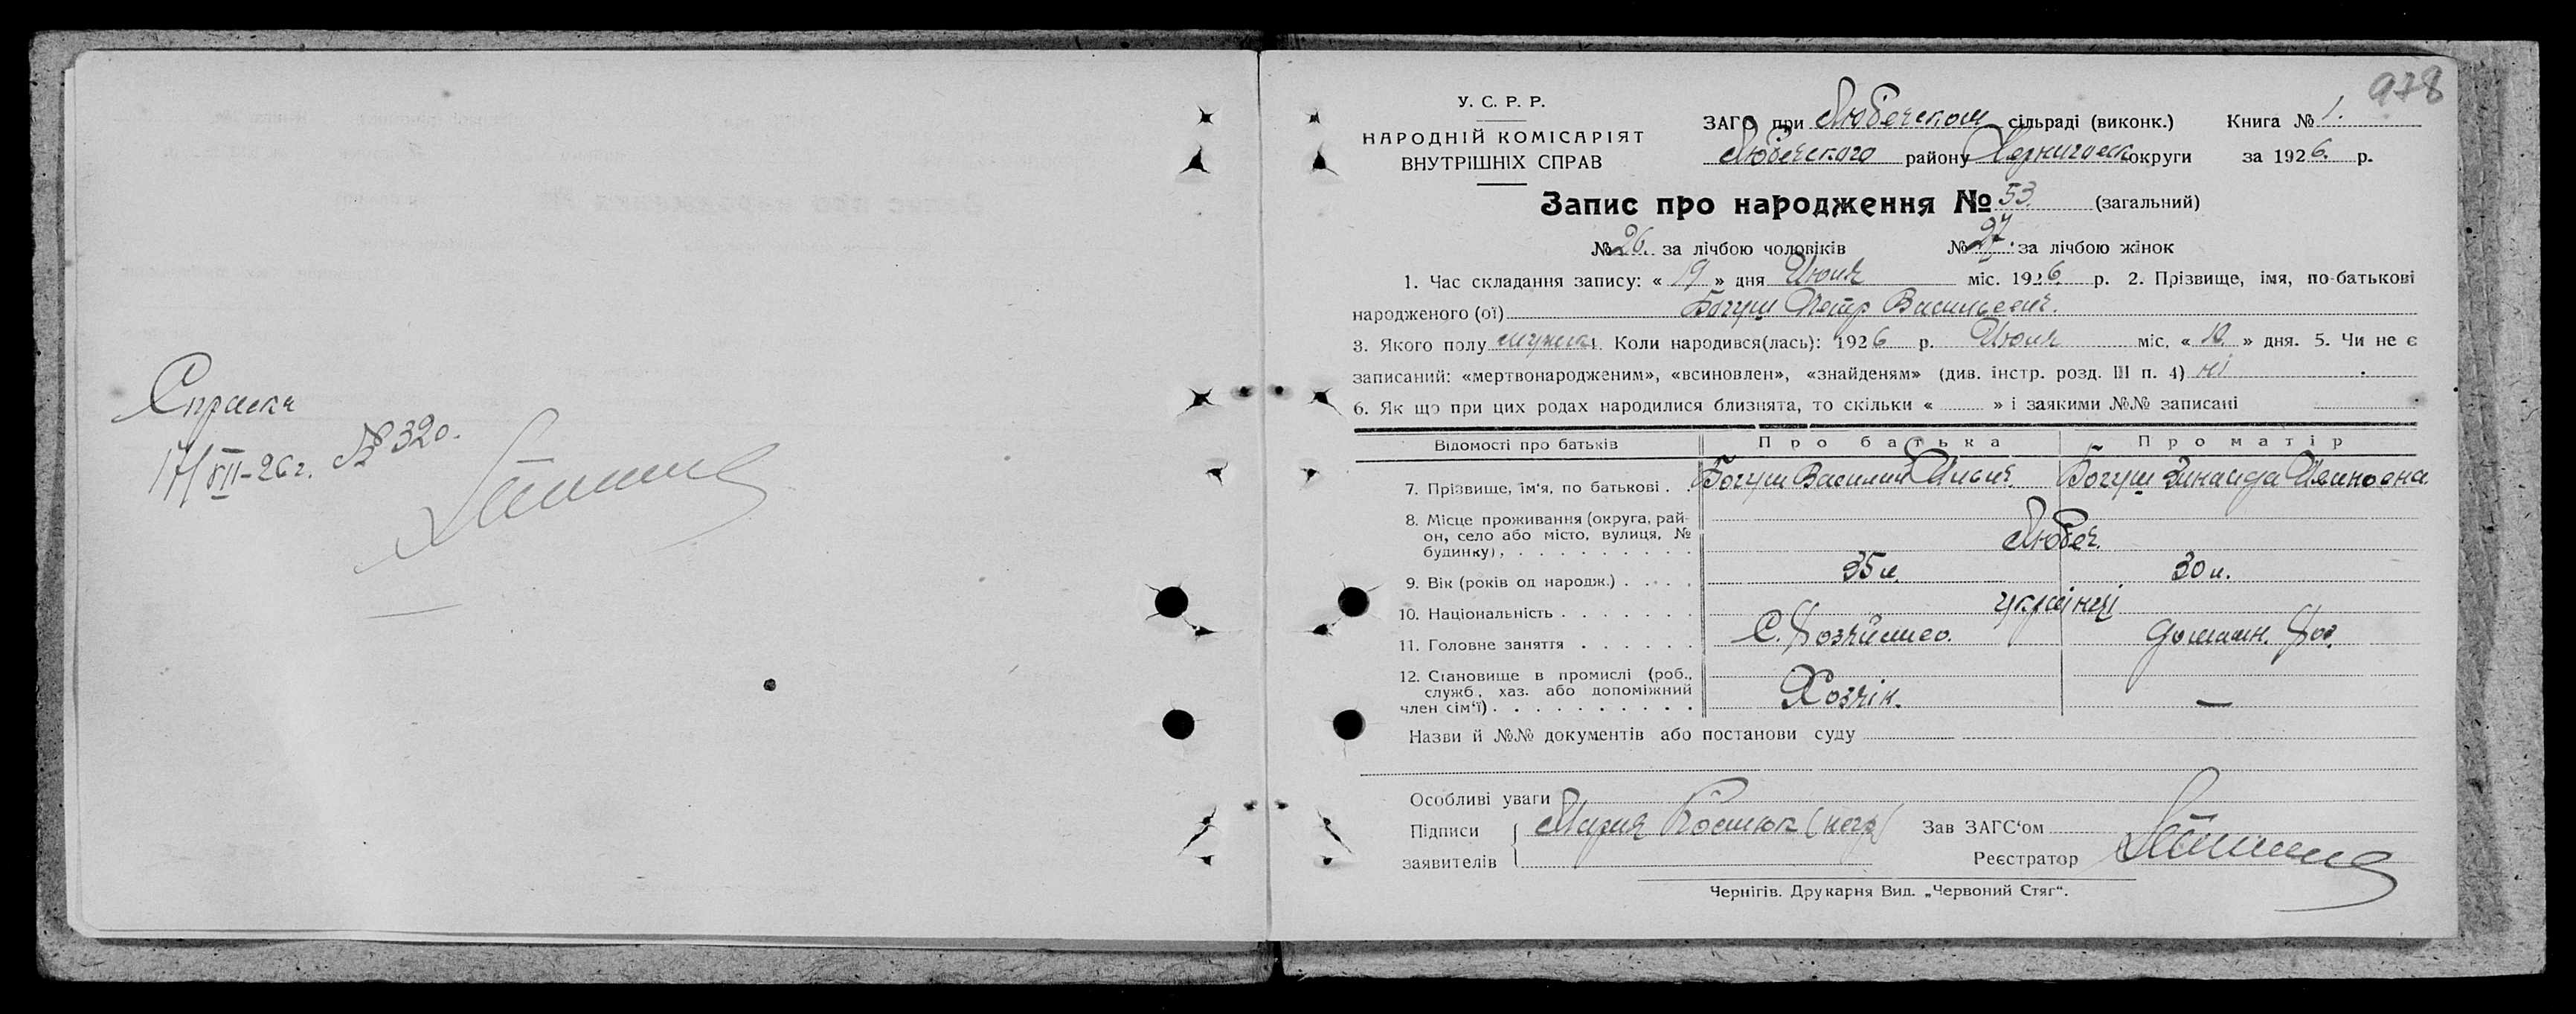 Справка
17/VII-26 г. № 320.
978
У. С. Р. Р.
НАРОДНІЙ КОМІСАРІЯТ
ВНУТРІШНІХ СПРАВ
ЗАГС при Любечском сільраді (виконк.) Книга № 1.
Любечского району Черниговск округи за 1926 р.
Запис про народження № 53 (загальний)
№ 26. за лічбою чоловіків № 27. за лічбою жінок
1. Час складання запису: « 19 » дня Июня міс. 1926 р. 2. Прізвище, імя, по-батькові
народженого (ої) Богуш Петр Васильевич.
3. Якого полу мужск. Коли народився(лась): 1926 р. Июня міс. « 10. » дня. 5. Чи не є
записаний: «мертвонародженим», «всиновлен», «знайденям» (див. інстр. розд. III п. 4) ні
6. Як що при цих родах народилися близнята, то скільки « » і заякими №№ записані
Відомості про батьків Про батька Про матір
7. Прізвище, ім'я, по батькові . . Богуш Василий Богуш Зинаида Ивановна.
8. Місце проживання (округа, рай-
он, село або місто, вулиця, №
будинку) . . . . . . . . . . Любеч.
9. Вік (років од народж.) . . . . 35 л. 30 л.
10. Національність . . . . . . . українці
11. Головне заняття . . . . . . С. Хозяйство. Домашн. Хоз.
12. Становище в промислі (роб.,
служб., хаз. або допоміжний
член сім'ї) . . . . . . . . . . Хозяін. —
Назви й №№ документів або постанови суду
Особливі уваги
Підписи Мария Костюк (негр) Зав ЗАГС'ом
заявителів Реєстратор
Чернігів. Друкарня Вид. „Червоний Стяг“.